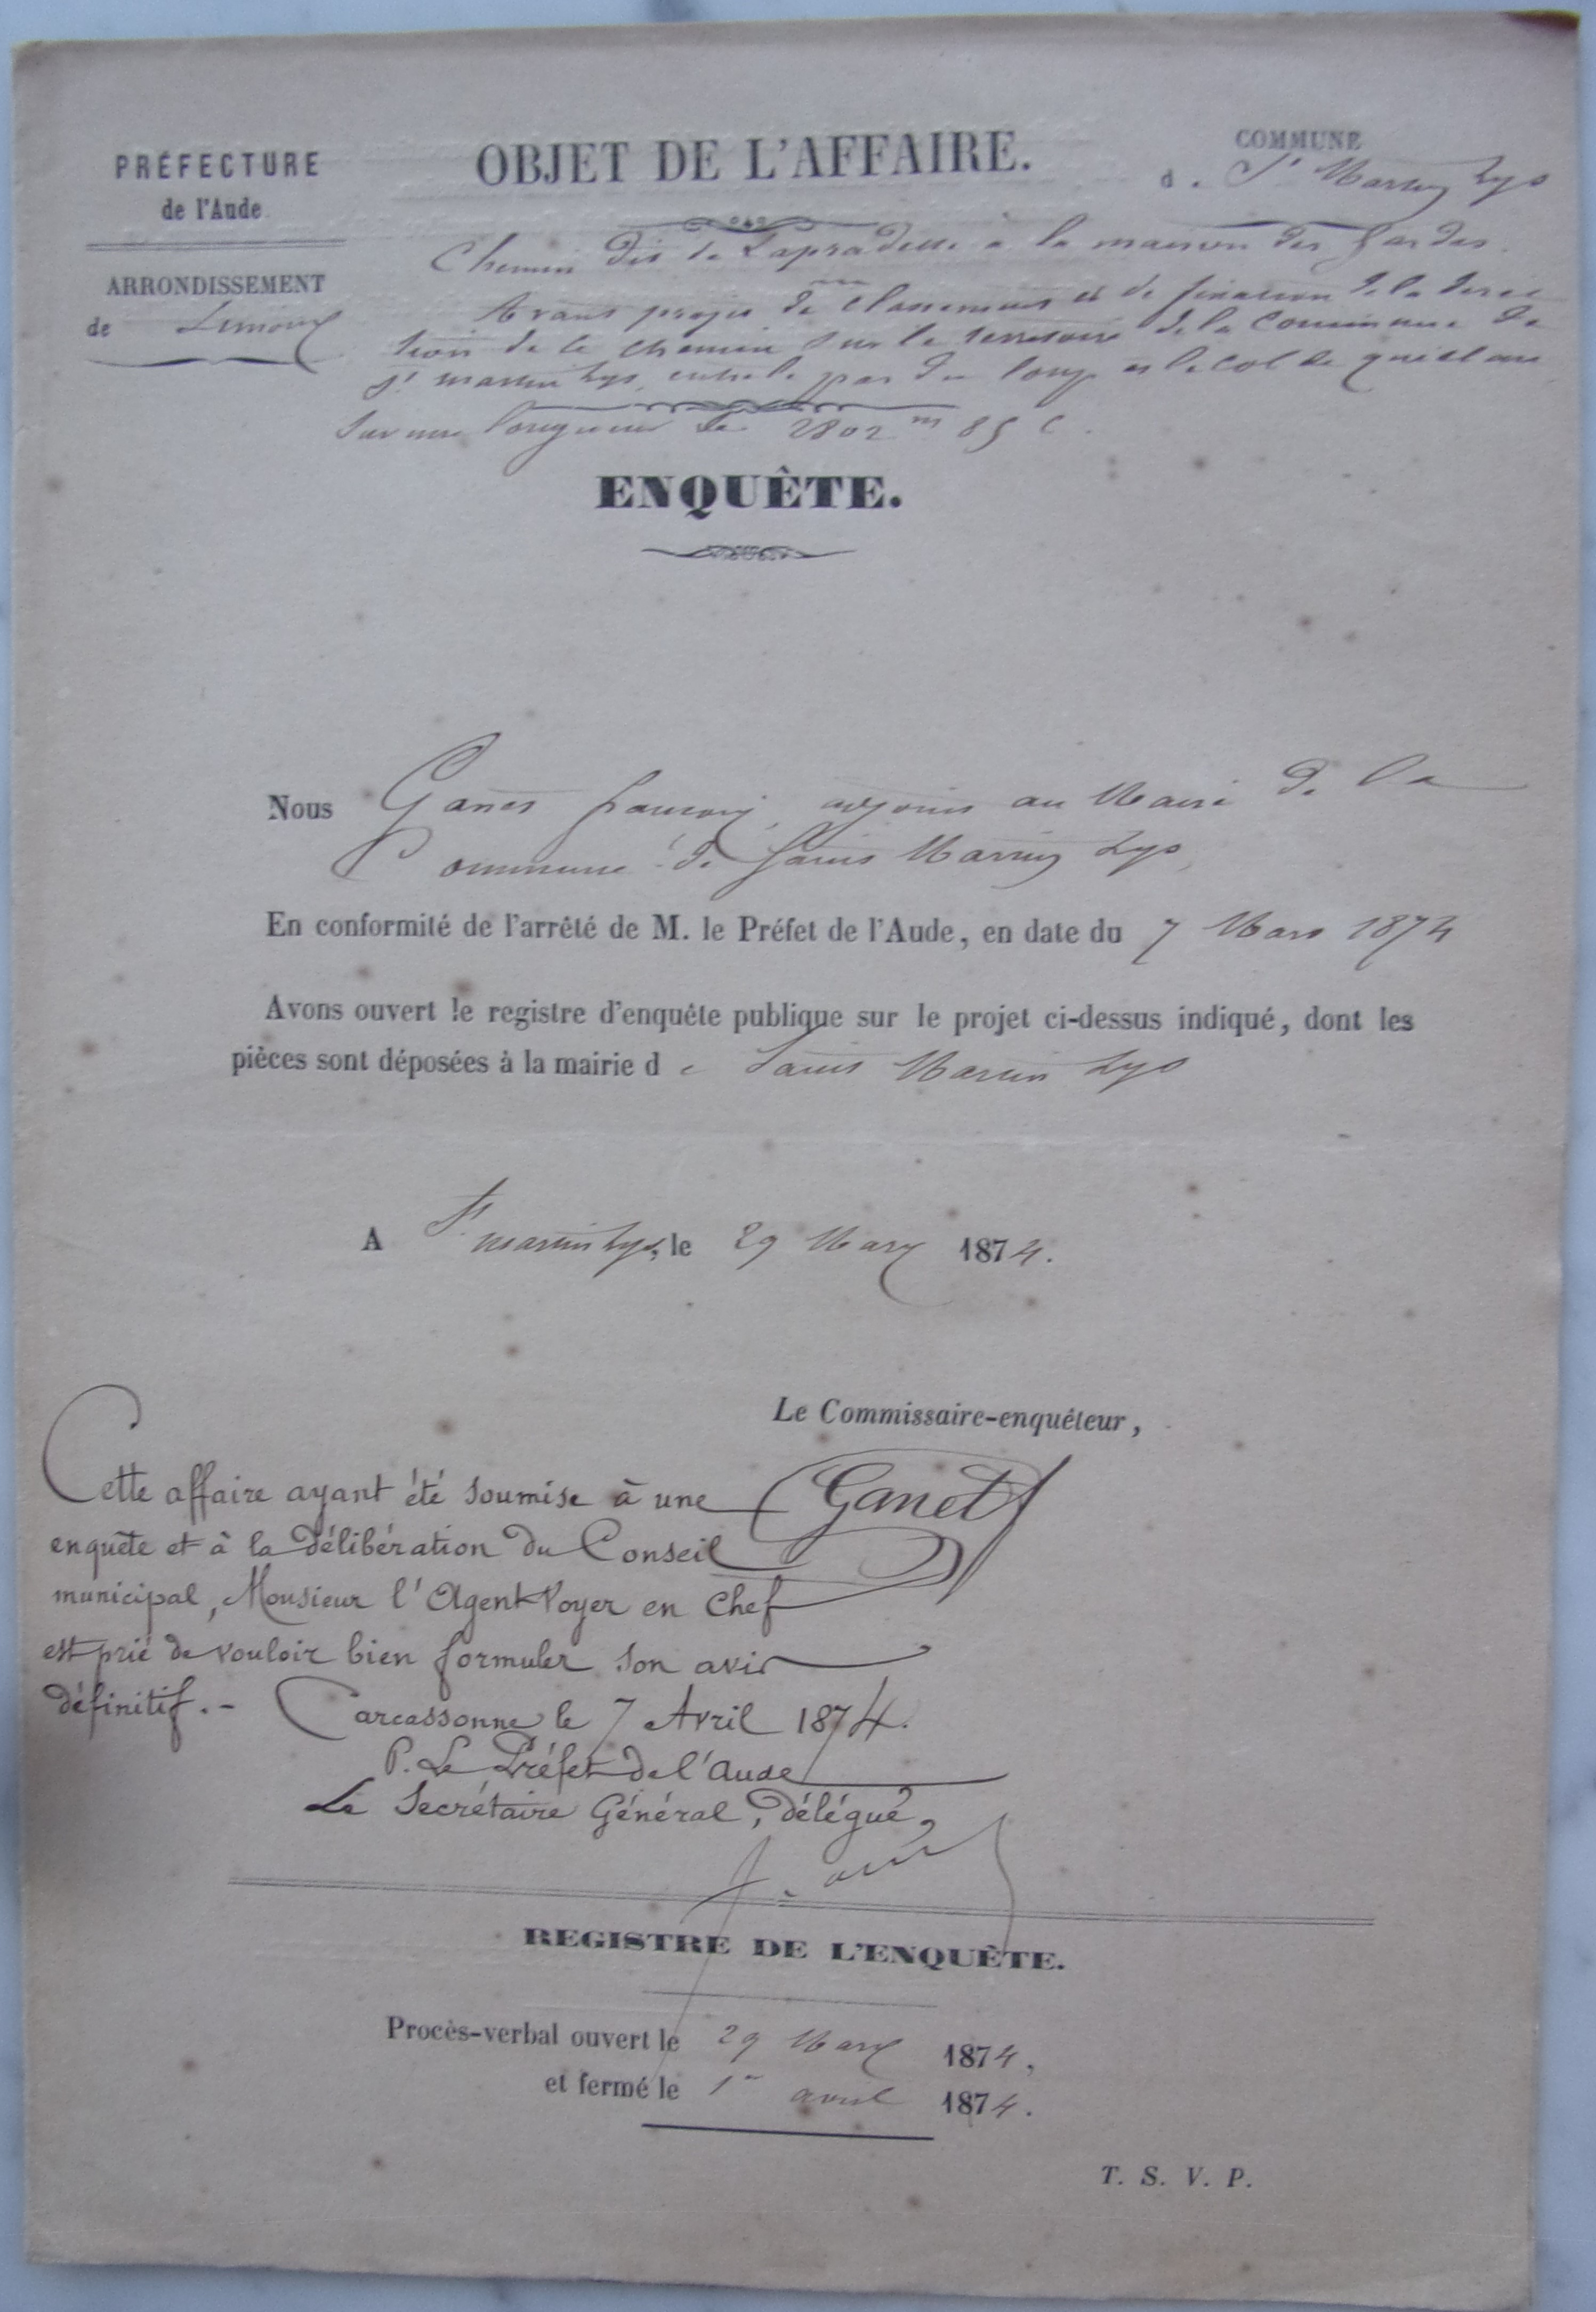 PRÉFECTURE
de l'Aude
ARRONDISSEMENT
de Limoux
OBJET DE L'AFFAIRE.
COMMUNE
de St Martin Lys
Chemin dit de Lapradelle à la maison des Gardes.
Avant projet de classement et de fixation de la direc
tion de ce chemin sur le territoire de la commune de
St martin Lys, entre le pas du loup et le col de
sur une longueur de 2802 m 85 c.
ENQUÊTE.
Nous Ganet françois, adjoint au Maire de la
Commune de Saint Martin Lys,
En conformité de l'arrêté de M. le Préfet de l'Aude, en date du 7 Mars 1874
Avons ouvert le registre d'enquête publique sur le projet ci-dessus indiqué, dont les
pièces sont déposées à la mairie de Saint Martin Lys
A St martin Lys, le 29 Mars 1874.
Le Commissaire-enquêteur,
Ganet
Cette affaire ayant été soumise à une
enquête et à la délibération du Conseil
municipal, Monsieur l'Agent Voyer en Chef
est prié de vouloir bien formuler son avis
définitif. - Carcassonne le 7 Avril 1874.
P. Le Préfet de l'Aude
Le Secrétaire Général, délégué,
REGISTRE DE L'ENQUÊTE.
Procès-verbal ouvert le 29 Mars 1874,
et fermé le 1er avril 1874.
T. S. V. P.